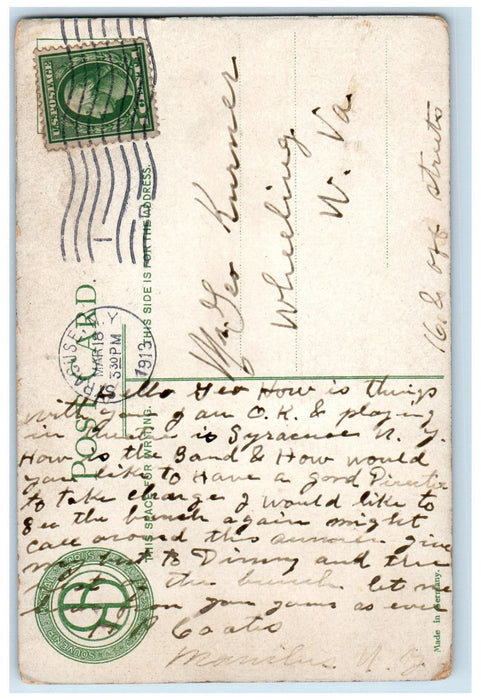 U.S. POSTAGE
1 CENT 1
SYRACUSE, N.Y.
MAR 18
3 30 PM
1913
POST CARD.
THIS SPACE FOR WRITING.
THIS SIDE IS FOR THE ADDRESS.
Mr. Geo Kurner
Wheeling
W. Va.
16 & off streets
Hello Geo How is things
with you I am O.K. & playing
in here is Syracuse N.Y.
How is the Band & How would
you like to Have a good Director
to take charge I would like to
see the bunch again might
call around this summer give
my best to Dinny and the
rest the bunch let me
from you yours as ever
Coates
Manlius N.Y.
Made in Germany.